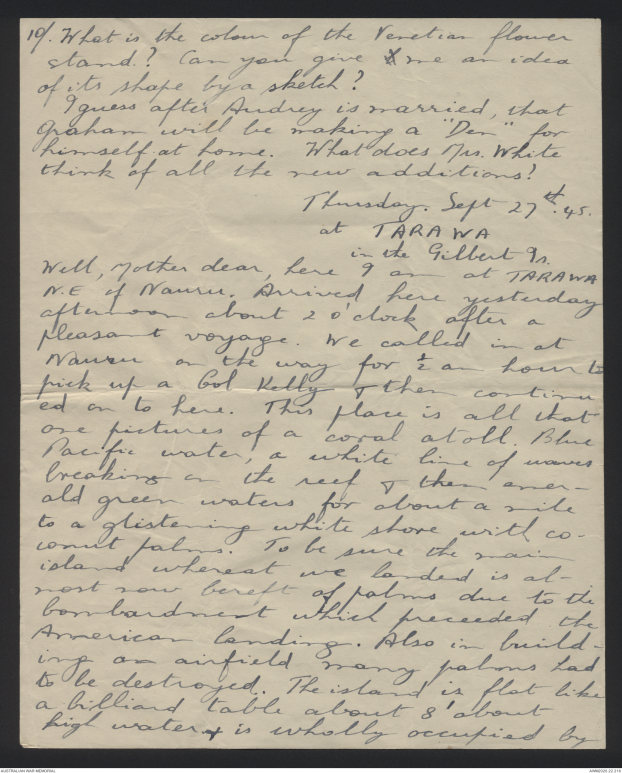 10/. What is the colour of the Venetian flower
stand? Can you give me an idea
of its shape by a sketch?
I guess after Audrey is married, that
Graham will be making a "Den" for
himself at home. What does Mrs. White
think of all the new additions?
Thursday. Sept 27th. 45.
at TARAWA
in the Gilbert Is.
Well, Mother dear, here I am at TARAWA
N.E of Nauru. Arrived here yesterday
afternoon about 2 o'clock after a
pleasant voyage. We called in at
Nauru on the way for ½ an hour to
pick up a Col Kelly & then continu
ed on to here. This place is all that
one pictures of a coral atoll. Blue
Pacific water, a white line of waves
breaking on the reef & then emer-
ald green waters for about a mile
to a glistening white shore with co-
conut palms. To be sure the main
island whereat we landed is al-
most now bereft of palms due to the
bombardment which preceeded the
American landing. Also in build-
ing an airfield many palms had
to be destroyed. The island is flat like
a billiard table about 8' about
high water & is wholly occupied by
AUSTRALIAN WAR MEMORIAL